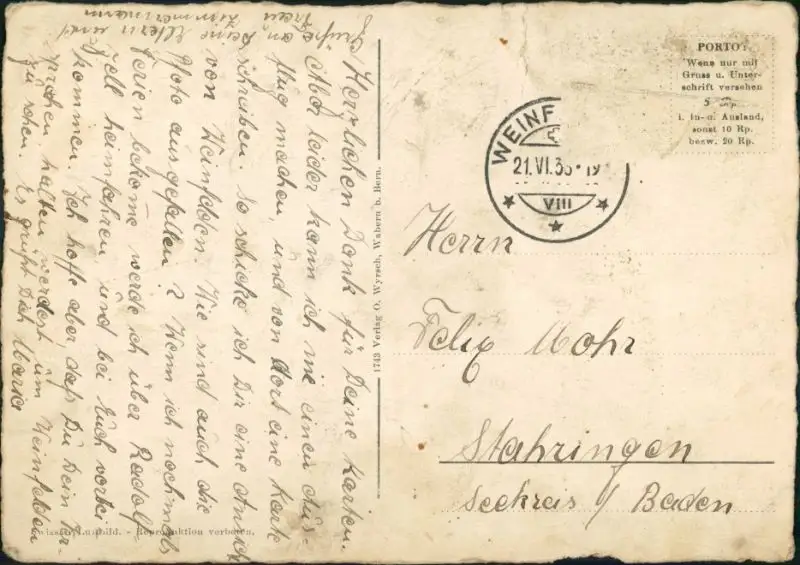 Herzlichen Dank für Deine Karten.
Aber leider kann ich nie einen Aus-
flug machen, und von dort eine Karte
schreiben. So schicke ich Dir eine Ansich
von Weinfelden. Wie sind auch die
Photo ausgefallen? Wenn ich nochmals
Ferien bekomme werde ich über Radolf-
zell heimfahren und bei Euch vorbei
kommen. Ich hoffe aber, daß Du Dein Ver-
prechen halten werdest um Weinfelden
zu sehen. Es grüßt Dich Maria
Grüße an Deine Eltern und
Zimmermann
1743 Verlag O. Wyrsch, Wabern b. Bern.
Reproduktion verboten.
PORTO:
Wenn nur mit
Gruss u. Unter-
schrift versehen
5 Rp.
i. In- u. Ausland,
sonst 10 Rp.
bezw. 20 Rp.
WEINF
21.VI.36-19
VIII
Herrn
Felix Mohr
Stahringen
Seekreis / Baden